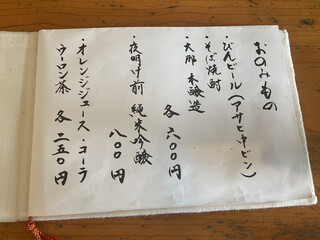 おのみもの
・びんビール(アサヒ中ビン)
・そば焼酎
・大那 本醸造
各六００円
・夜明け前 純米吟醸
八００円
・オレンジジュース・コーラ
ウーロン茶 各二五０円